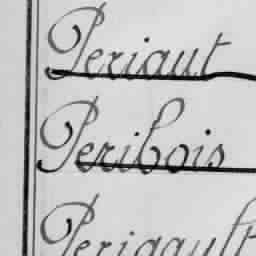 Periaut
Peribois
Perigault